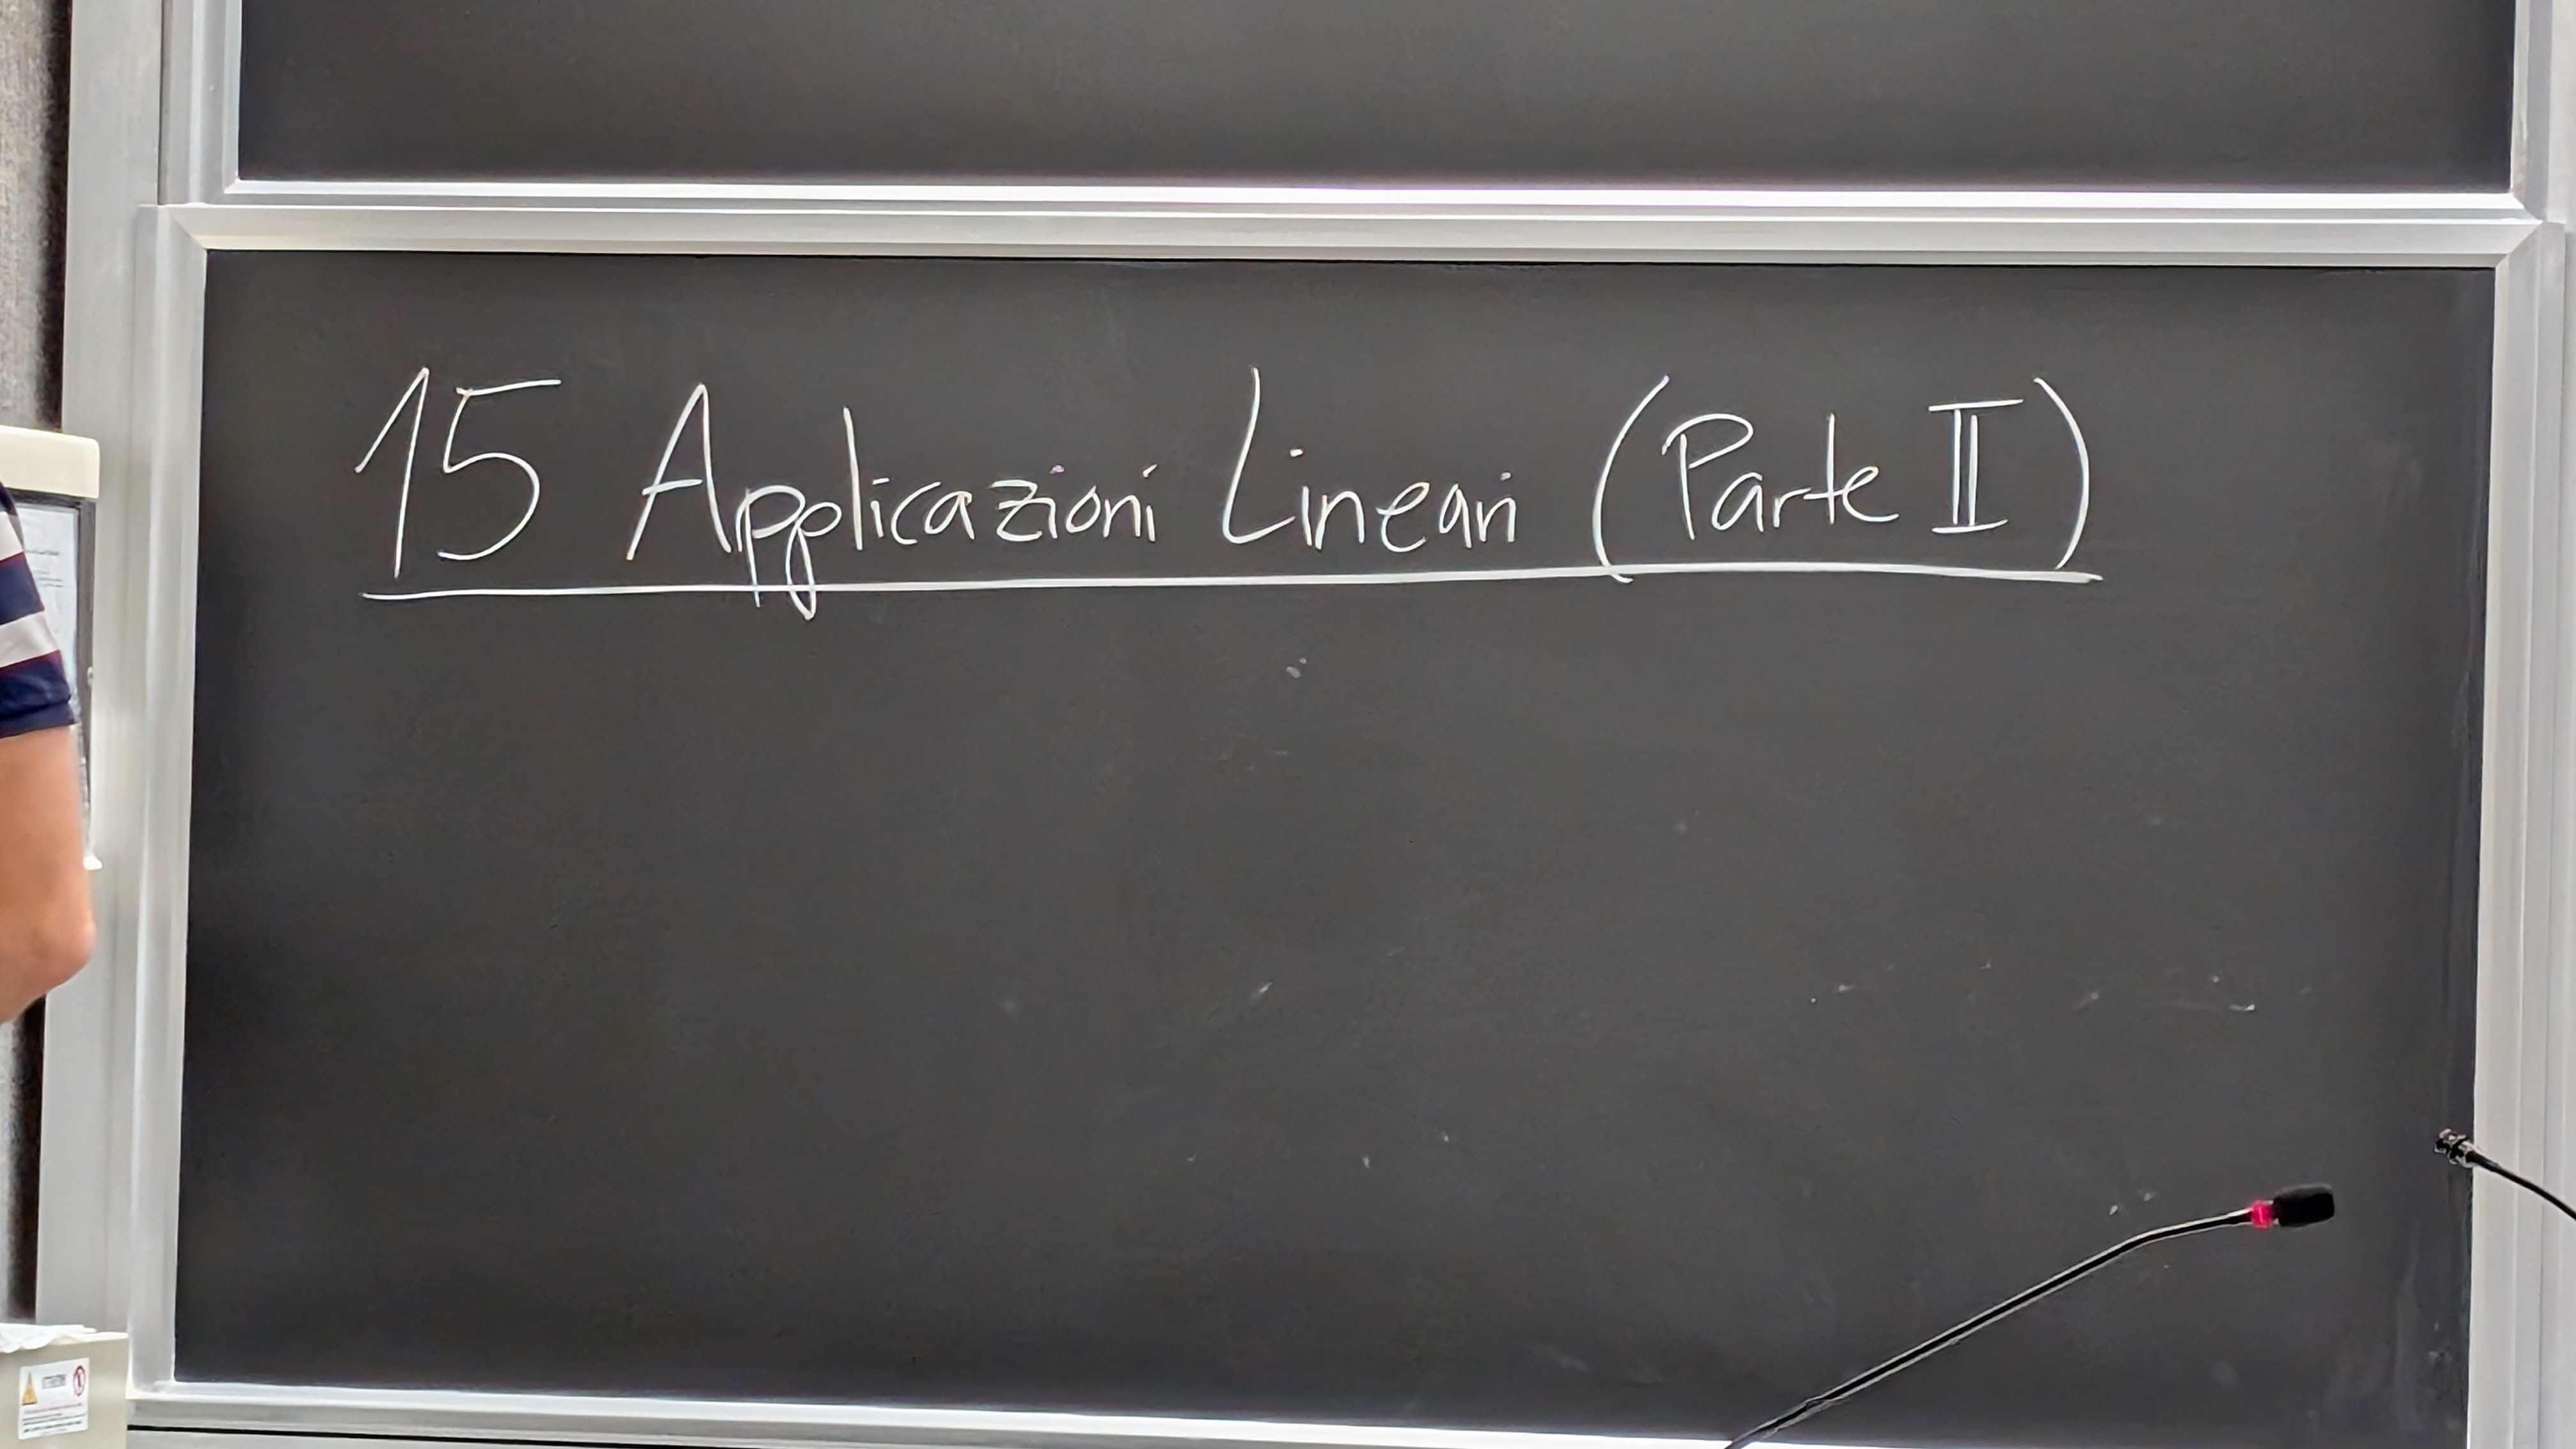 15 Applicazioni Lineari (Parte II)